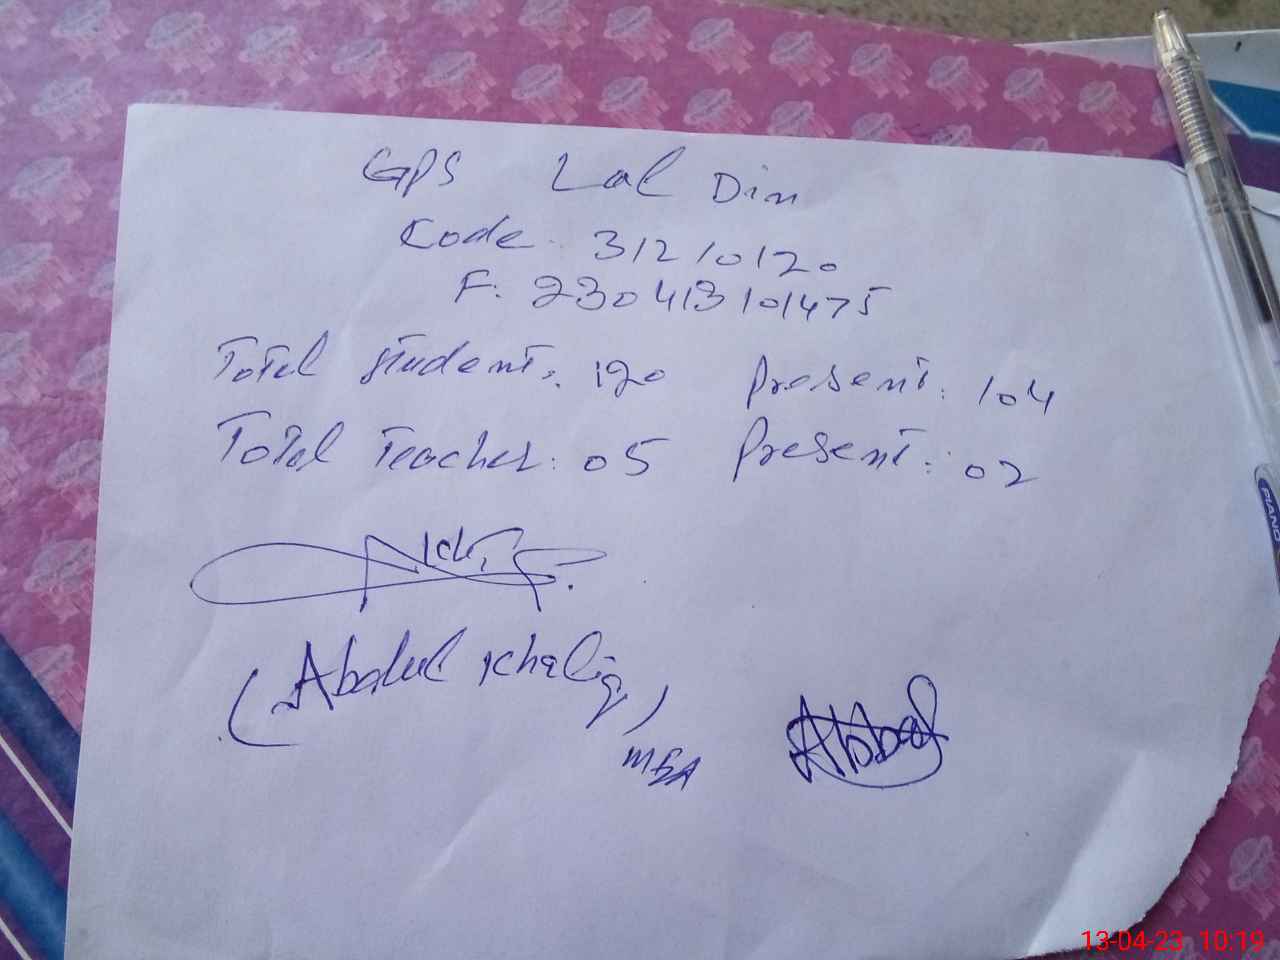 GPS Lal Din
Code. 31210120
F. 230413101475
Total students. 120 Present. 104
Total Teacher. 05 Present. 02
(Abdul Khaliq)
MEA
Abbas
PIANO
13-04-23 10:19